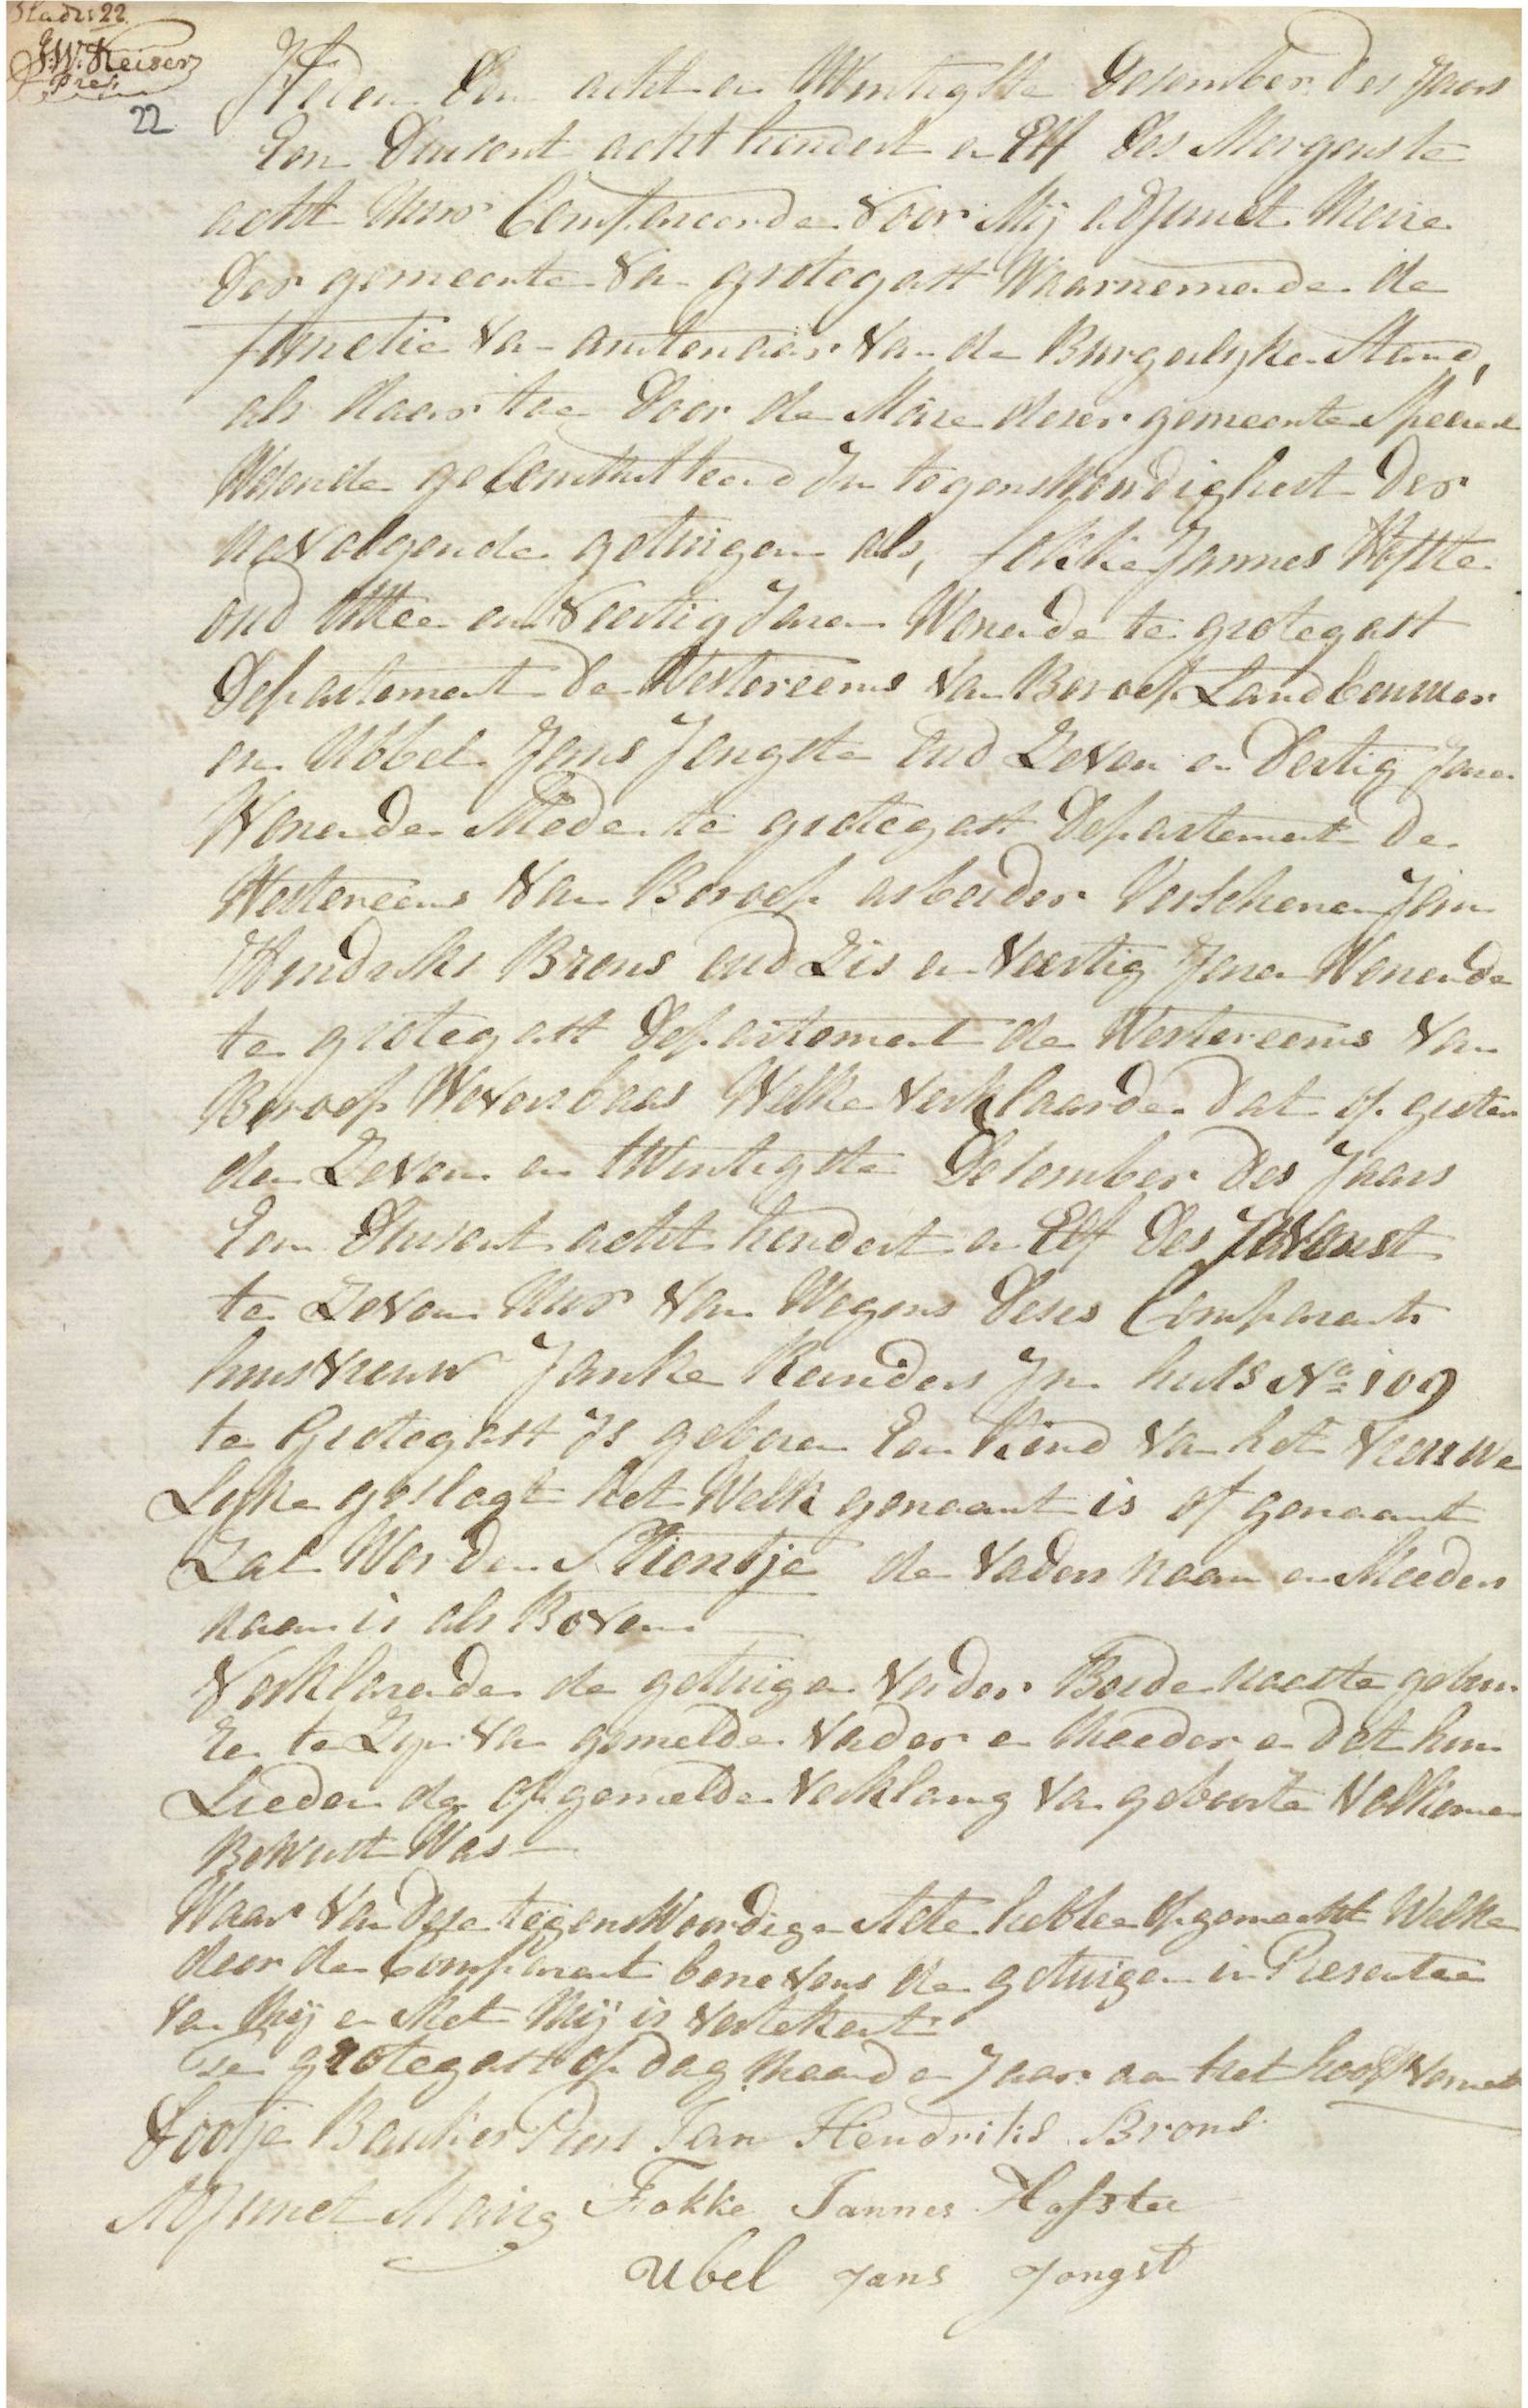 Bladz 22.
J.W. Keiser
Pres.
22
Heden den acht en Twintigste Desember des Jaars
Een Duisent acht hondert en Elf des Morgens te
acht Uuro Compareerde Voor Mij adjunct Maire
Der gemeente Van grotegast Waarnemende de
functie Van amtenaar Van de Burgerlyke Stand,
als daar toe door de Maire deser gemeente Speciaal
Wesende gecommitteerd In tegenswoordigheit Der
navolgende getuigen als, fokke Jannes Hofstee
oud Twee en Veertig Jaren Wonende te grotegast
Departement De Westereems Van Beroep Landbouwer
en Ubbel Jans Jongste oud Zeven en Dertig Jaren
Wonende Mede te grotegast Departement De
Westereems Van Beroep arbeider Verschenen Jan
Hendriks Brons oud Zes en Veertig Jaren Wonende
te grotegast Departement de Westereems Van
Beroep Weversbaas Welke Verklaarde Dat op gisteren
den Zeven en Twintigste Desember des Jaars
Een Duisent acht hondert en Elf Des Javonst
te Zeven Uur Van Wegens Deses Comparants
huisvrouw Janke Reinders In huis No 109
te Grotegast Is geboren Een Kind Van het Vrouwe
Lyke geslagt het Welk genaamt is of genaamt
Zal Worden Stientje de Vaders naam en Moeders
naam is als Boven
Verklarende de getuigen Verder Beide naaste gebu
ren te Zyn van gemelde Vader en Moeder en Dat hun
Lieden de opgemelde Verklaring Van geboorte Volkomen
Bewust Was
Waar Van Dese tegenswoordige Acte hebbe opgemaakt Welke
door de Comparant benevens de getuigen in Presentie
Van Mij en Met Mij is Vertekent
Te grotegast op dag Maand en Jaar aan het hoofd Vermelt
Baukes Jan Hendriks Brons
Adjunct Maire Fokke Jannes Hofstee
Ubel Jans Jongst